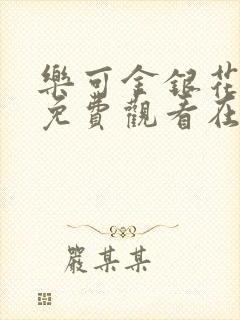 樂可金銀花
免費觀看在
嚴某某